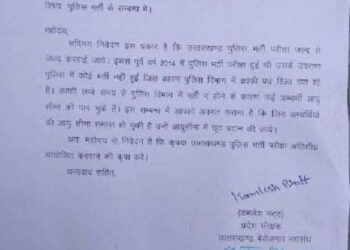 विषय पुलिस भर्ती के सम्बन्ध में।
महोदय,
सविनय निवेदन इस प्रकार है कि उत्तराखण्ड पुलिस भर्ती परीक्षा जल्द से
जल्द करवाई जाये। इससे पूर्व वर्ष 2014 में पुलिस भर्ती परीक्षा हुई थी उसके उपरान्त
पुलिस में कोई भर्ती नहीं हुई जिस कारण पुलिस विभाग में काफी पद रिक्त चल रहे
हैं। काफी लम्बे समय से पुलिस विभाग में भर्ती न होने के कारण कई अभ्यर्थी आयु
सीमा को पार कर चुके हैं। इस सम्बन्ध में आपको अवगत कराना है कि जिन अभ्यर्थियों
की आयु सीमा समाप्त हो चुकी है उन्हें आयुसीमा में छूट प्रदान की जाये।
अतः महोदय से निवेदन है कि कृपया उत्तराखण्ड पुलिस भर्ती परीक्षा अतिशीघ्र
आयोजित करवाने की कृपा करें।
धन्यवाद सहित,
Kamlesh Bhatt
(कमलेश भट्ट)
प्रदेश संरक्षक
उत्तराखण्ड बेरोजगार महासंघ